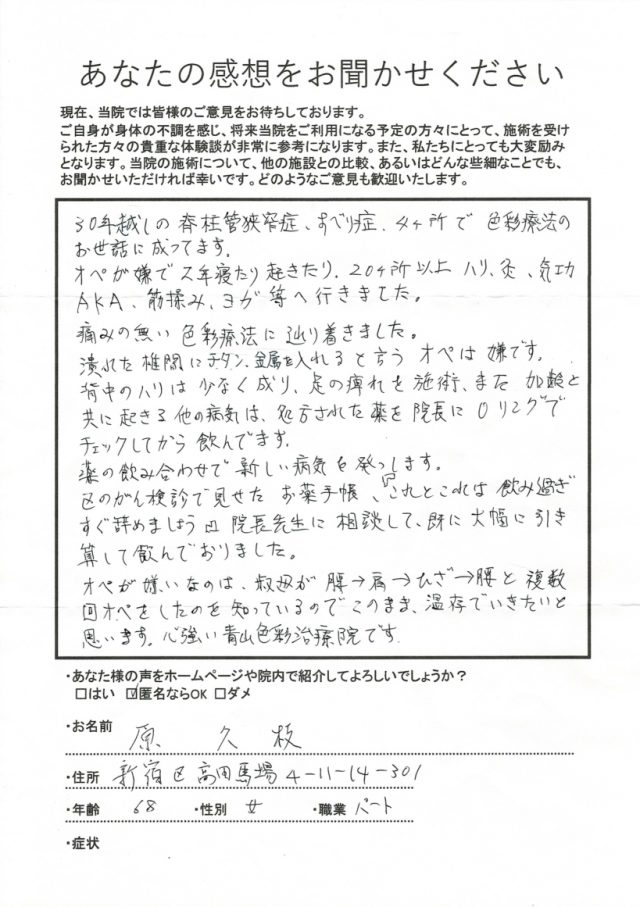 あなたの感想をお聞かせください
現在、当院では皆様のご意見をお待ちしております。
ご自身が身体の不調を感じ、将来当院をご利用になる予定の方々にとって、施術を受け
られた方々の貴重な体験談が非常に参考になります。また、私たちにとっても大変励み
となります。当院の施術について、他の施設との比較、あるいはどんな些細なことでも、
お聞かせいただければ幸いです。どのようなご意見も歓迎いたします。
30年越しの 脊柱管狭窄症、すべり症、4ヶ所で 色彩療法の
お世話に成ってます。
オペが嫌で 2年寝たり起きたり、20ヶ所以上 ハリ、灸、気功
AKA、筋揉み、ヨガ等へ行きました。
痛みの無い 色彩療法に辿り着きました。
潰れた椎間にチタン、金属を入れると言う オペは 嫌です。
背中のハリは 少なく成り、足の痺れを施術、また 加齢と
共に起きる他の病気は、処方された薬を院長に Oリングで
チェックしてから 飲んでます。
薬の飲み合わせで 新しい病気を発っします。
区のがん検診で見せた お薬手帳、「これとこれは 飲み過ぎ
すぐ辞めましょう」 院長先生に 相談して、既に 大幅に引き
算して飲んでおりました。
オペが嫌いなのは、叔母が 腰→肩→ひざ→腰と 複数
回オペをしたのを知っているのでこのまま、温存でいきたいと
思います。心強い青山色彩治療院です。
・あなた様の声をホームページや院内で紹介してよろしいでしょうか？
□はい ☑匿名ならOK □ダメ
・お名前 原 久枝
・住所 新宿区高田馬場4-11-14-301
・年齢 68 ・性別 女 ・職業 パート
・症状